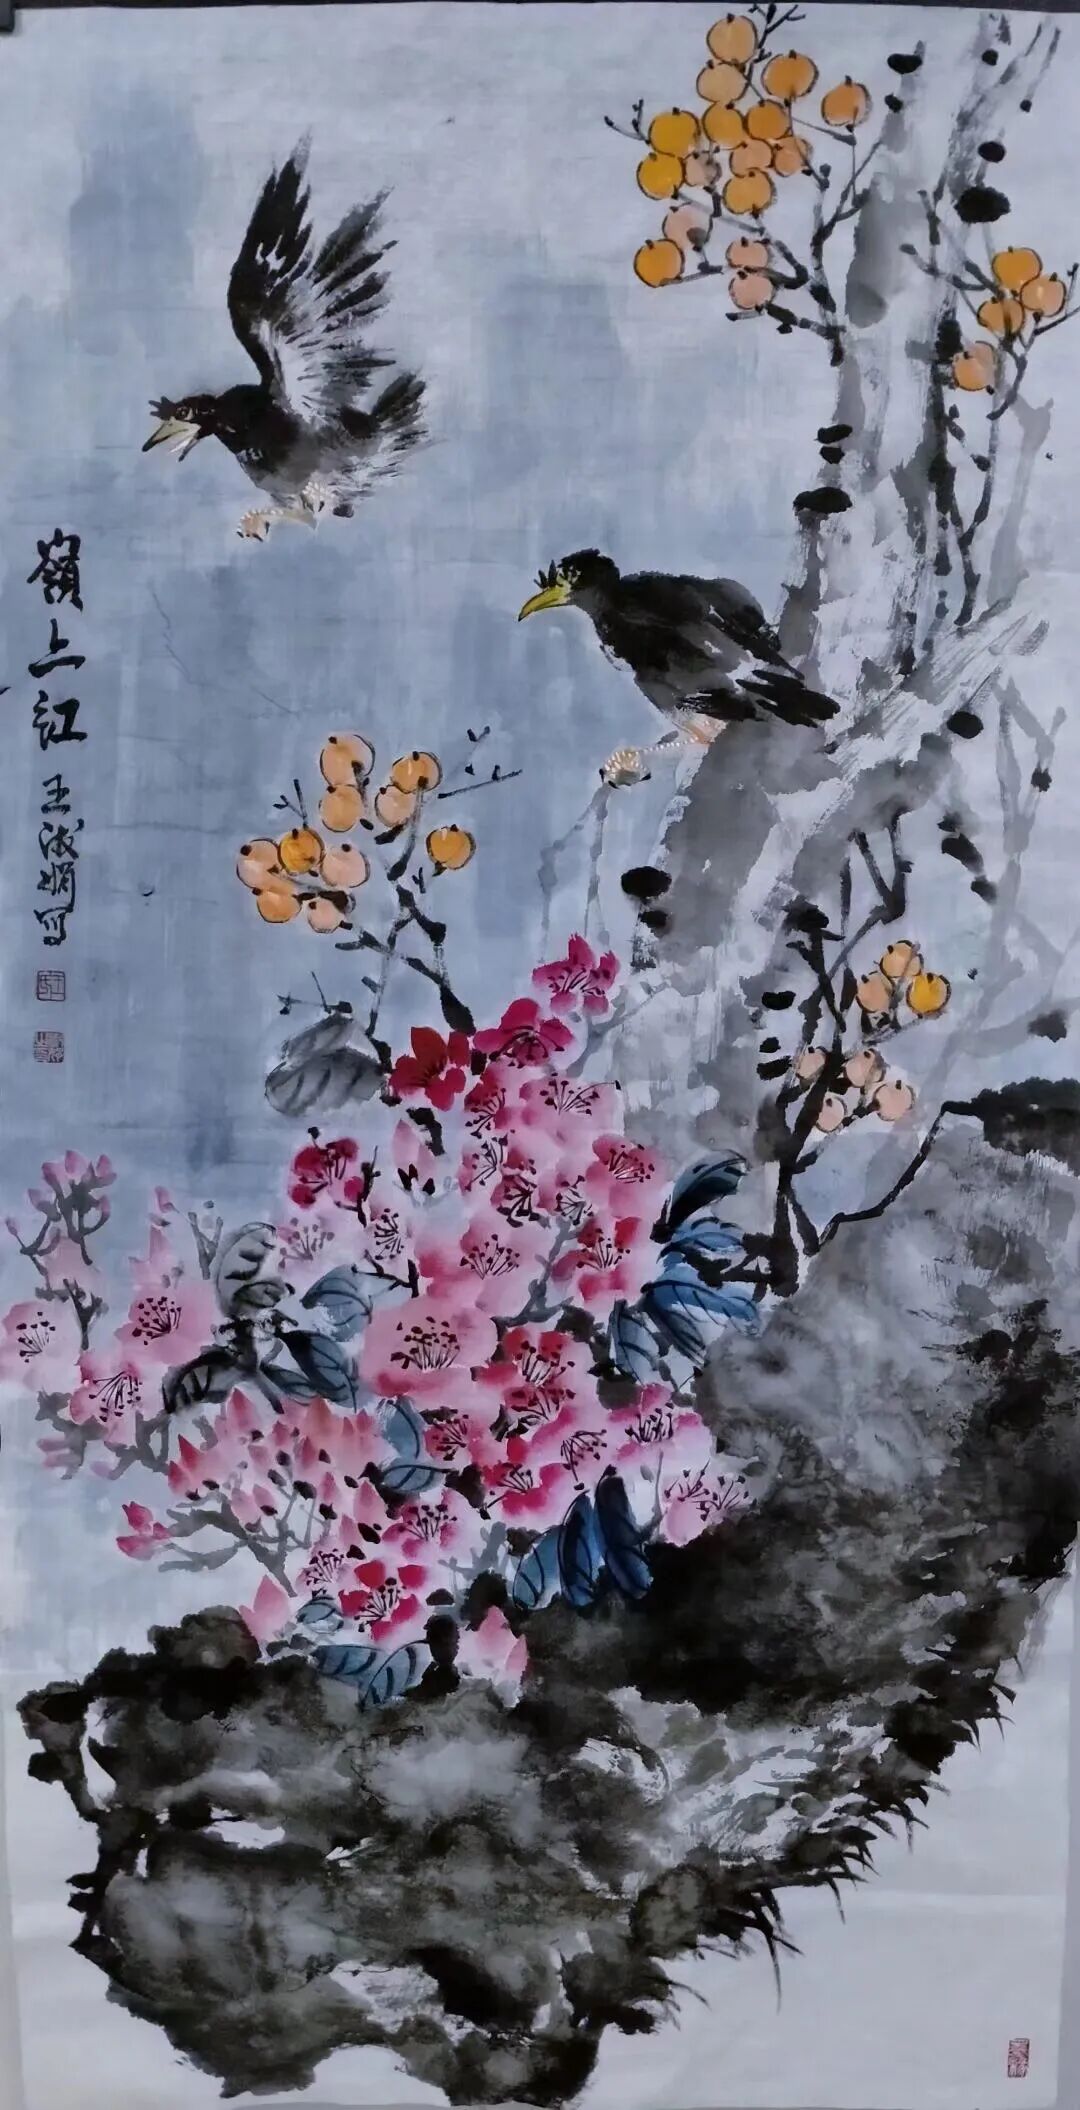 嶺上红 王淑娟写